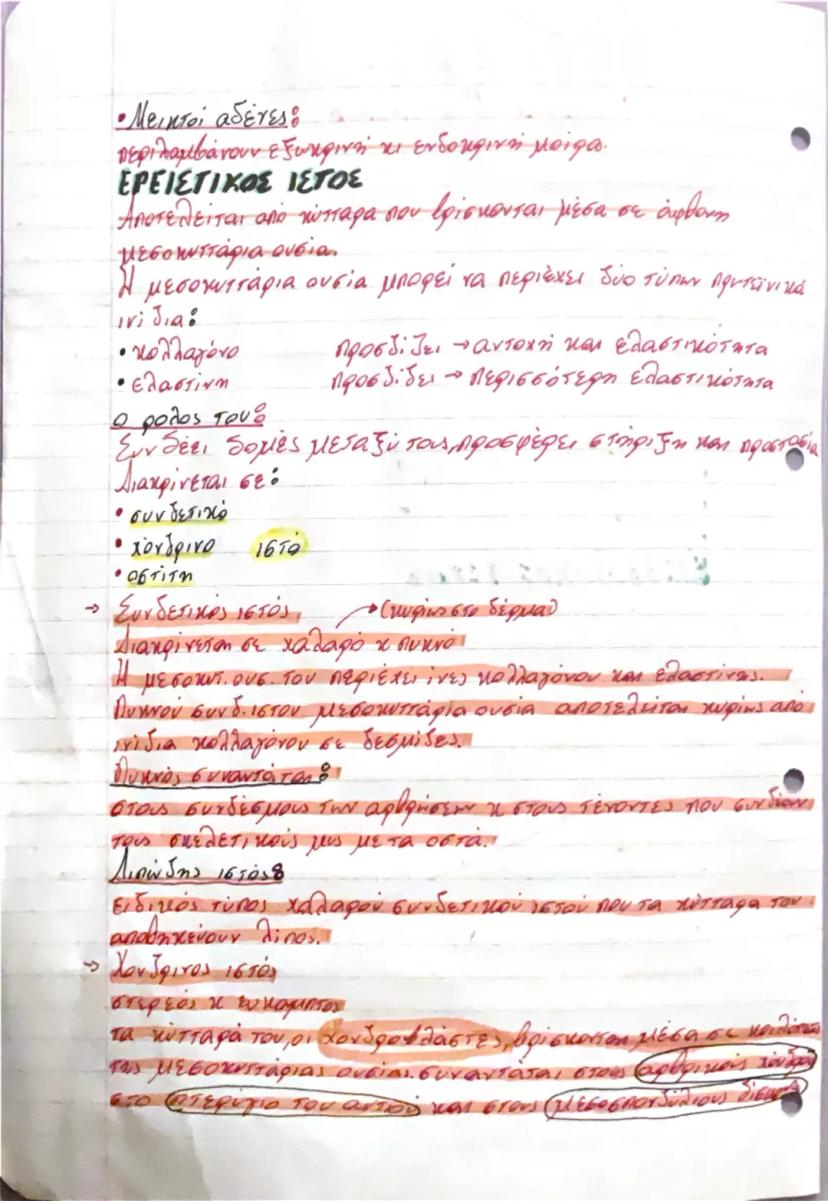 • Μεικτοί αδένες:
περιλαμβάνουν εξωκρινή κι ενδοκρινή μοίρα.
ΕΡΕΙΣΤΙΚΟΣ ΙΣΤΟΣ
Αποτελείται από κύτταρα που βρίσκονται μέσα σε άφθονη
μεσοκυττάρια ουσία.
Η μεσοκυττάρια ουσία μπορεί να περιέχει δύο τύπων πρωτεϊνικά
ινίδια:
• κολλαγόνο προσδίδει → αντοχή και ελαστικότητα
• ελαστίνη προσδίδει → περισσότερη ελαστικότητα
Ο ρολος του:
Συνδέει δομές μεταξύ τους, προσφέρει στήριξη και προστασία
Διακρίνεται σε:
• συνδετικό
• χόνδρινο ιστό
• οστίτη
→ Συνδετικός ιστός (κυρίως στο δέρμα)
Διακρίνεται σε χαλαρό κ πυκνό
Η μεσοκυτ. ουσ. του περιέχει ίνες κολλαγόνου και ελαστίνης.
Πυκνού συνδ. ιστου μεσοκυττάρια ουσία αποτελείται κυρίως από
ινίδια κολλαγόνου σε δεσμίδες.
Πυκνός συναντάται:
στους συνδέσμους των αρθρώσεων κ στους τένοντες που συνδέουν
τους σκελετικούς μυς με τα οστά.
Λιπώδης ιστός:
ειδικός τύπος χαλαρού συνδετικού ιστού που τα κύτταρα του
αποθηκεύουν λίπος.
→ Χονδρινος ιστός
στερεός κ ευκαμπτος
τα κύτταρά του, οι χονδροβλάστες, βρίσκονται μέσα σε κοιλότητες
της μεσοκυττάριας ουσίας. συναντάται στους αρθρικούς χόνδρους
στο πτερύγιο του αυτιού και στους μεσοσπονδύλιους δίσκους